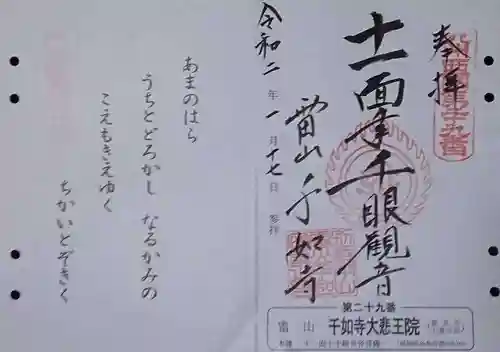 奉拝
九州西國第廿九番
十一面千手千眼觀音
雷山千如寺
令和二年一月十七日 参拝
第二十九番
雷山 千如寺大悲王院
あまのはら
うちとどろかし なるかみの
こえもきえゆく
ちかいとぞきく